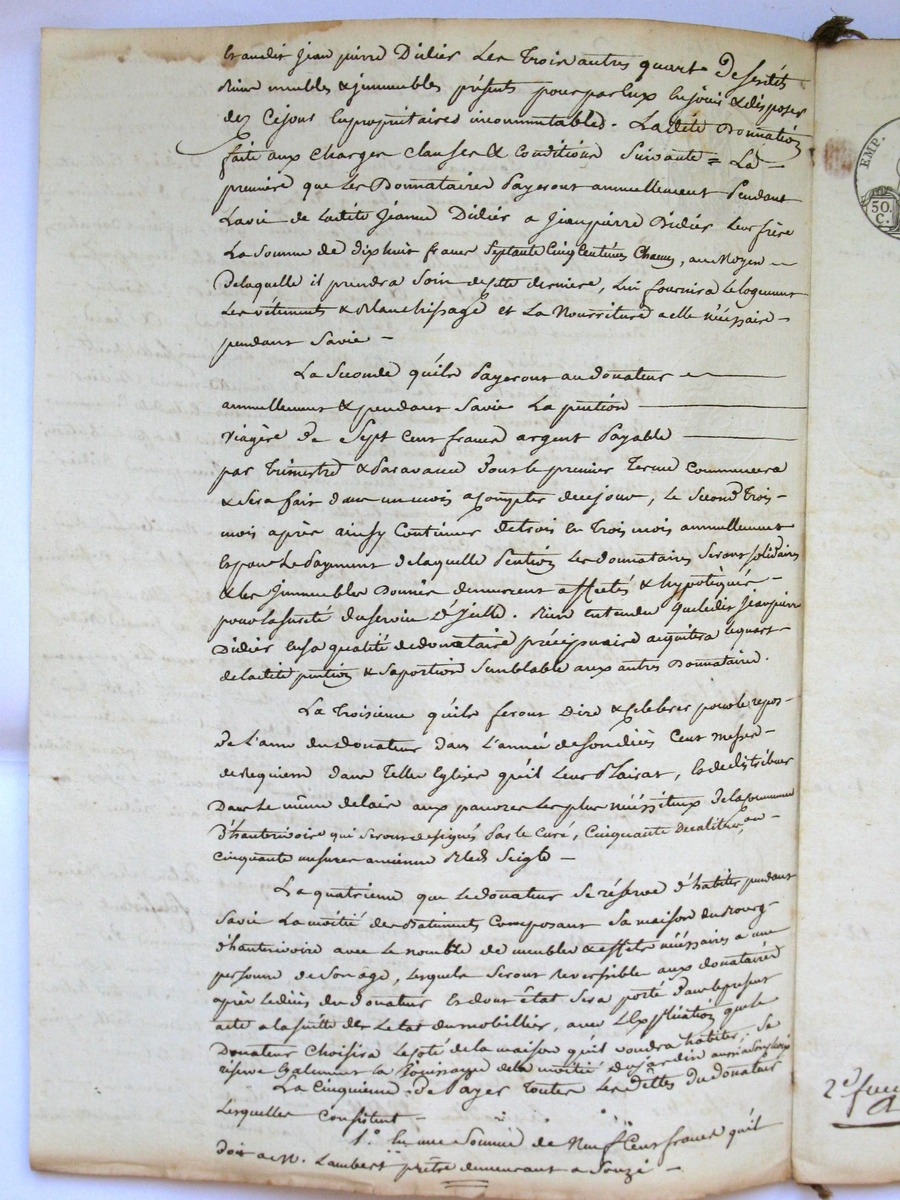 et audit Jean pierre Didier Les Trois autres quarts Desdits
Biens meubles & jmmeubles présents pour par Eux En jouir & disposer
dez Cejour En propriétaires incommutables. La dite Donnation
faite aux Charges Clauses & Conditions Suivante = La
premiere que Les Donnataires Payeront annuellement Pendant
La vie de Ladite Jeanne Didier a Jean pierre Didier Leur frère
La Somme de dix huit francs Septante Cinq Centimes Chacun, au Moyen
De laquelle il prendra Soin de cette derniere, Lui fournira Le logement
Les vêtements & Blanchissage et La Nourriture a elle nécessaire
pendant Sa vie
La Seconde qu'ils Payeront au donateur
annuellement & pendant Sa vie La pention
viagère De Sept Cent francs argent Payable
par Trimestre & Par avance Dont le premier Terme Commencera
& Sera fait dans un mois a Compter de ce jour, Le Second Trois
mois après ainsy Continuer de trois En Trois mois annuellement
Et pour Le Payment de laquelle Pention Les donnataires Seront Solidaires
& Les Jmmeubles Donnés demeurent affectés & hypotéqués
pour La Sureté du Service D'Jcelle. Bien entendu que Ledit Jean pierre
Didier En sa qualité de donataire préciputaire acquitera le quart
de Ladite pention & Sa portion Semblable aux autres Donnataires.
La Troisieme qu'ils feront Dire & Celebrer pour le repos
De L'ame du Donateur dans L'année de Son décès Cent messes
de Requiem dans Telles Eglises qu'il Leur Plaira, & de distribuer
Dans Le même delai aux pauvres Les plus nécessiteux De la Commune
D'hauterivoire qui Seront designés Par le Curé, Cinquante Decalitres, ou
Cinquante mesures ancienne Bled Seigle
La quatrieme que Le donateur Se réserve D'habiter pendant
Sa vie La moitié des Batiments Composant Sa maison du Bourg
d'hauterivoire avec Le nombre de meubles & Effets nécessaires a une
personne de Son age, Lesquels Seront reversible aux donataires
après Le décès du donateur Et dont état Sera porté Dans le présent
acte a La Suitte de Letat du mobillier, avec L'Explication que le
Donateur Choisira Le Coté de la maison qu'il voudra habiter, Se
réserve Egalement La Jouissance de la moitié Du jardin
La Cinquieme De Payer Toutes Les Dettes Du donateur
Lesquelles Consistent
1.° En une Somme de Neuf Cent francs qu'il
Doit a M. Lambert prêtre demeurant a Souzi
EMP.
50.
C.